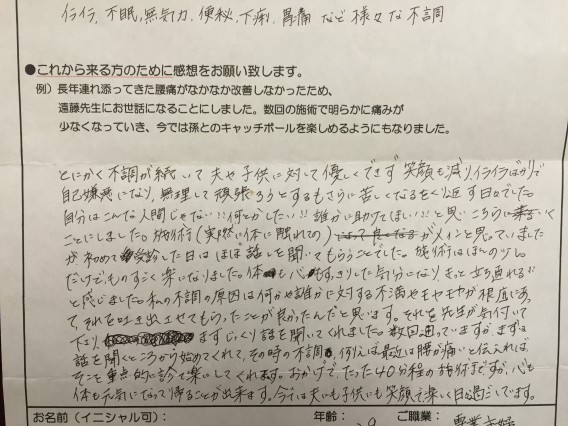 イライラ、不眠、無気力、便秘、下痢、胃痛 など 様々な不調
●これから来る方のために感想をお願い致します。
例）長年連れ添ってきた腰痛がなかなか改善しなかったため、
遠藤先生にお世話になることにしました。数回の施術で明らかに痛みが
少なくなっていき、今では孫とのキャッチボールを楽しめるようにもなりました。
とにかく不調が続いて夫や子供に対して優しくできず 笑顔も減り、イライラばかりで
自己嫌悪になり、無理して頑張ろうとするもさらに苦しくなるをくり返す日々でした。
自分はこんな人間じゃない!!何とかしたい!!誰かに助けてほしい!!と思い こちらに
ことにしました。施術(実際に体に触れての) がメインと思っていました
が初めて受診した日はほぼ話しを聞いてもらうことでした。施術はほんの少し
だけで、ものすごく楽になりました。体も心もすっきりした気分になり、きっと立ち直れる!!
と感じました。私の不調の原因は何かや誰かに対する不満やモヤモヤが根底にあっ
て、それを吐き出させてもらったことが良かったんだと思います。それを先生が気付いて
下さり、まずじっくり話を聞いてくれました。数回通っていますが、まずは
話を聞くところから始めてくれて、その時の不調、例えば最近は腰が痛いと伝えれば、
そこを重点的に診て楽にしてくれます。おかげで、たった40分程の施術ですが、心も
体も元気になって帰ることが出来ます。今では夫も子供も笑顔で楽しく日々過ごしています。
お名前（イニシャル可）： 年齢： ご職業： 専業主婦